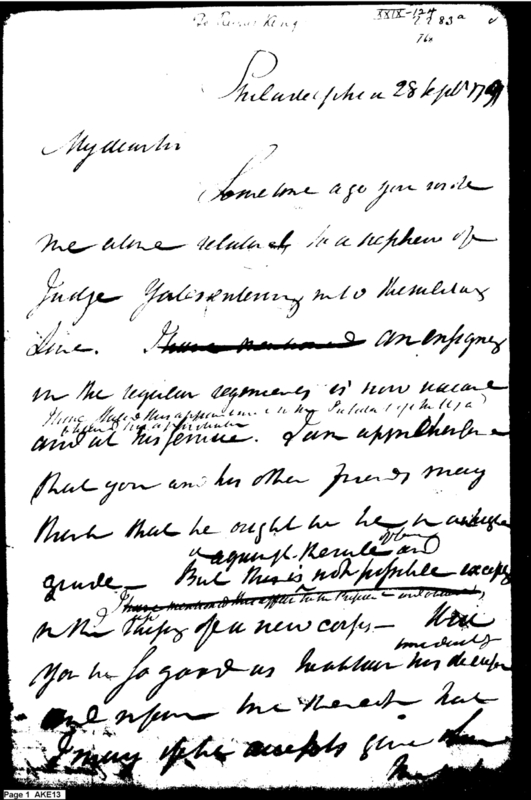 To Rufus King
XXIX-124
83a
768
Philadelphia 28 Sept 1791
My dear Sir
Some time ago you wrote
me a line relative to a nephew of
Judge Yates entering into the military
line. I have mentioned an ensigncy
in the regular regiments is now vacant
I have stated this appointment to the
and at his service. I am apprehensive
that you and his other friends may
think that he ought to be in a higher
grade - But this is not possible except
against the rule and
I have mentioned this affair to the
in the of a new corps - Will
you be so good as to obtain his decision
immediately
and inform me thereof that
I may if he accepts give
Page 1 AKE13